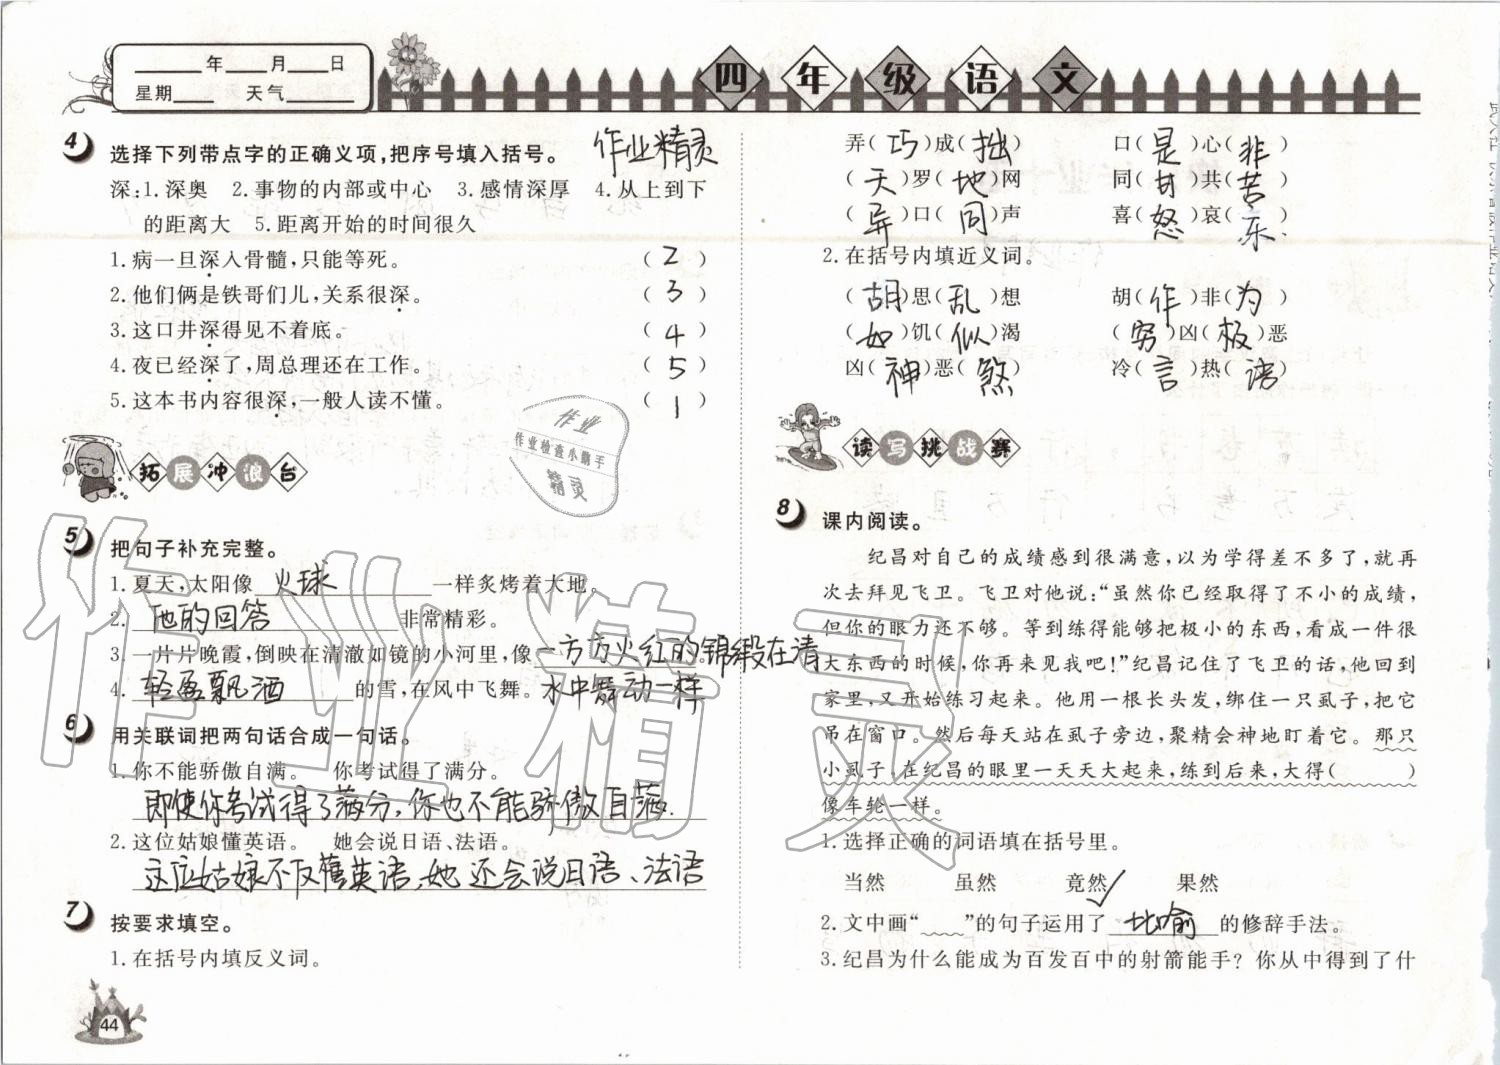 年 月 日
星期 天气
四年级语文
4 选择下列带点字的正确义项,把序号填入括号。 作业精灵
深:1.深奥 2.事物的内部或中心 3.感情深厚 4.从上到下
的距离大 5.距离开始的时间很久
1.病一旦深入骨髓,只能等死。 ( 2 )
2.他们俩是铁哥们儿,关系很深。 ( 3 )
3.这口井深得见不着底。 ( 4 )
4.夜已经深了,周总理还在工作。 ( 5 )
5.这本书内容很深,一般人读不懂。 ( 1 )
作业
作业检查小帮手
精灵
拓展冲浪台
5 把句子补充完整。
1.夏天,太阳像 火球 一样炙烤着大地。
2. 他的回答 非常精彩。
3.一片片晚霞,倒映在清澈如镜的小河里,像一方方火红的锦缎在清
4. 轻盈飘洒 的雪,在风中飞舞。 水中舞动一样
6 用关联词把两句话合成一句话。
1.你不能骄傲自满。 你考试得了满分。
即使你考试得了满分,你也不能骄傲自满.
2.这位姑娘懂英语。 她会说日语、法语。
这位姑娘不仅懂英语,她还会说日语、法语
7 按要求填空。
1.在括号内填反义词。
44
弄( 巧 )成( 拙 ) 口( 是 )心( 非 )
( 天 )罗( 地 )网 同( 甘 )共( 苦 )
( 异 )口( 同 )声 喜( 怒 )哀( 乐 )
2.在括号内填近义词。
( 胡 )思( 乱 )想 胡( 作 )非( 为 )
( 如 )饥( 似 )渴 ( 穷 )凶( 极 )恶
凶( 神 )恶( 煞 ) 冷( 言 )热( 语 )
读写挑战赛
8 课内阅读。
纪昌对自己的成绩感到很满意,以为学得差不多了,就再
次去拜见飞卫。飞卫对他说:“虽然你已经取得了不小的成绩,
但你的眼力还不够。等到练得能够把极小的东西,看成一件很
大东西的时候,你再来见我吧!”纪昌记住了飞卫的话,他回到
家里,又开始练习起来。他用一根长头发,绑住一只虱子,把它
吊在窗口。然后每天站在虱子旁边,聚精会神地盯着它。那只
小虱子,在纪昌的眼里一天天大起来,练到后来,大得( )
像车轮一样。
1.选择正确的词语填在括号里。
当然 虽然 竟然✓ 果然
2.文中画“ ”的句子运用了 比喻 的修辞手法。
3.纪昌为什么能成为百发百中的射箭能手?你从中得到了什
作业精灵